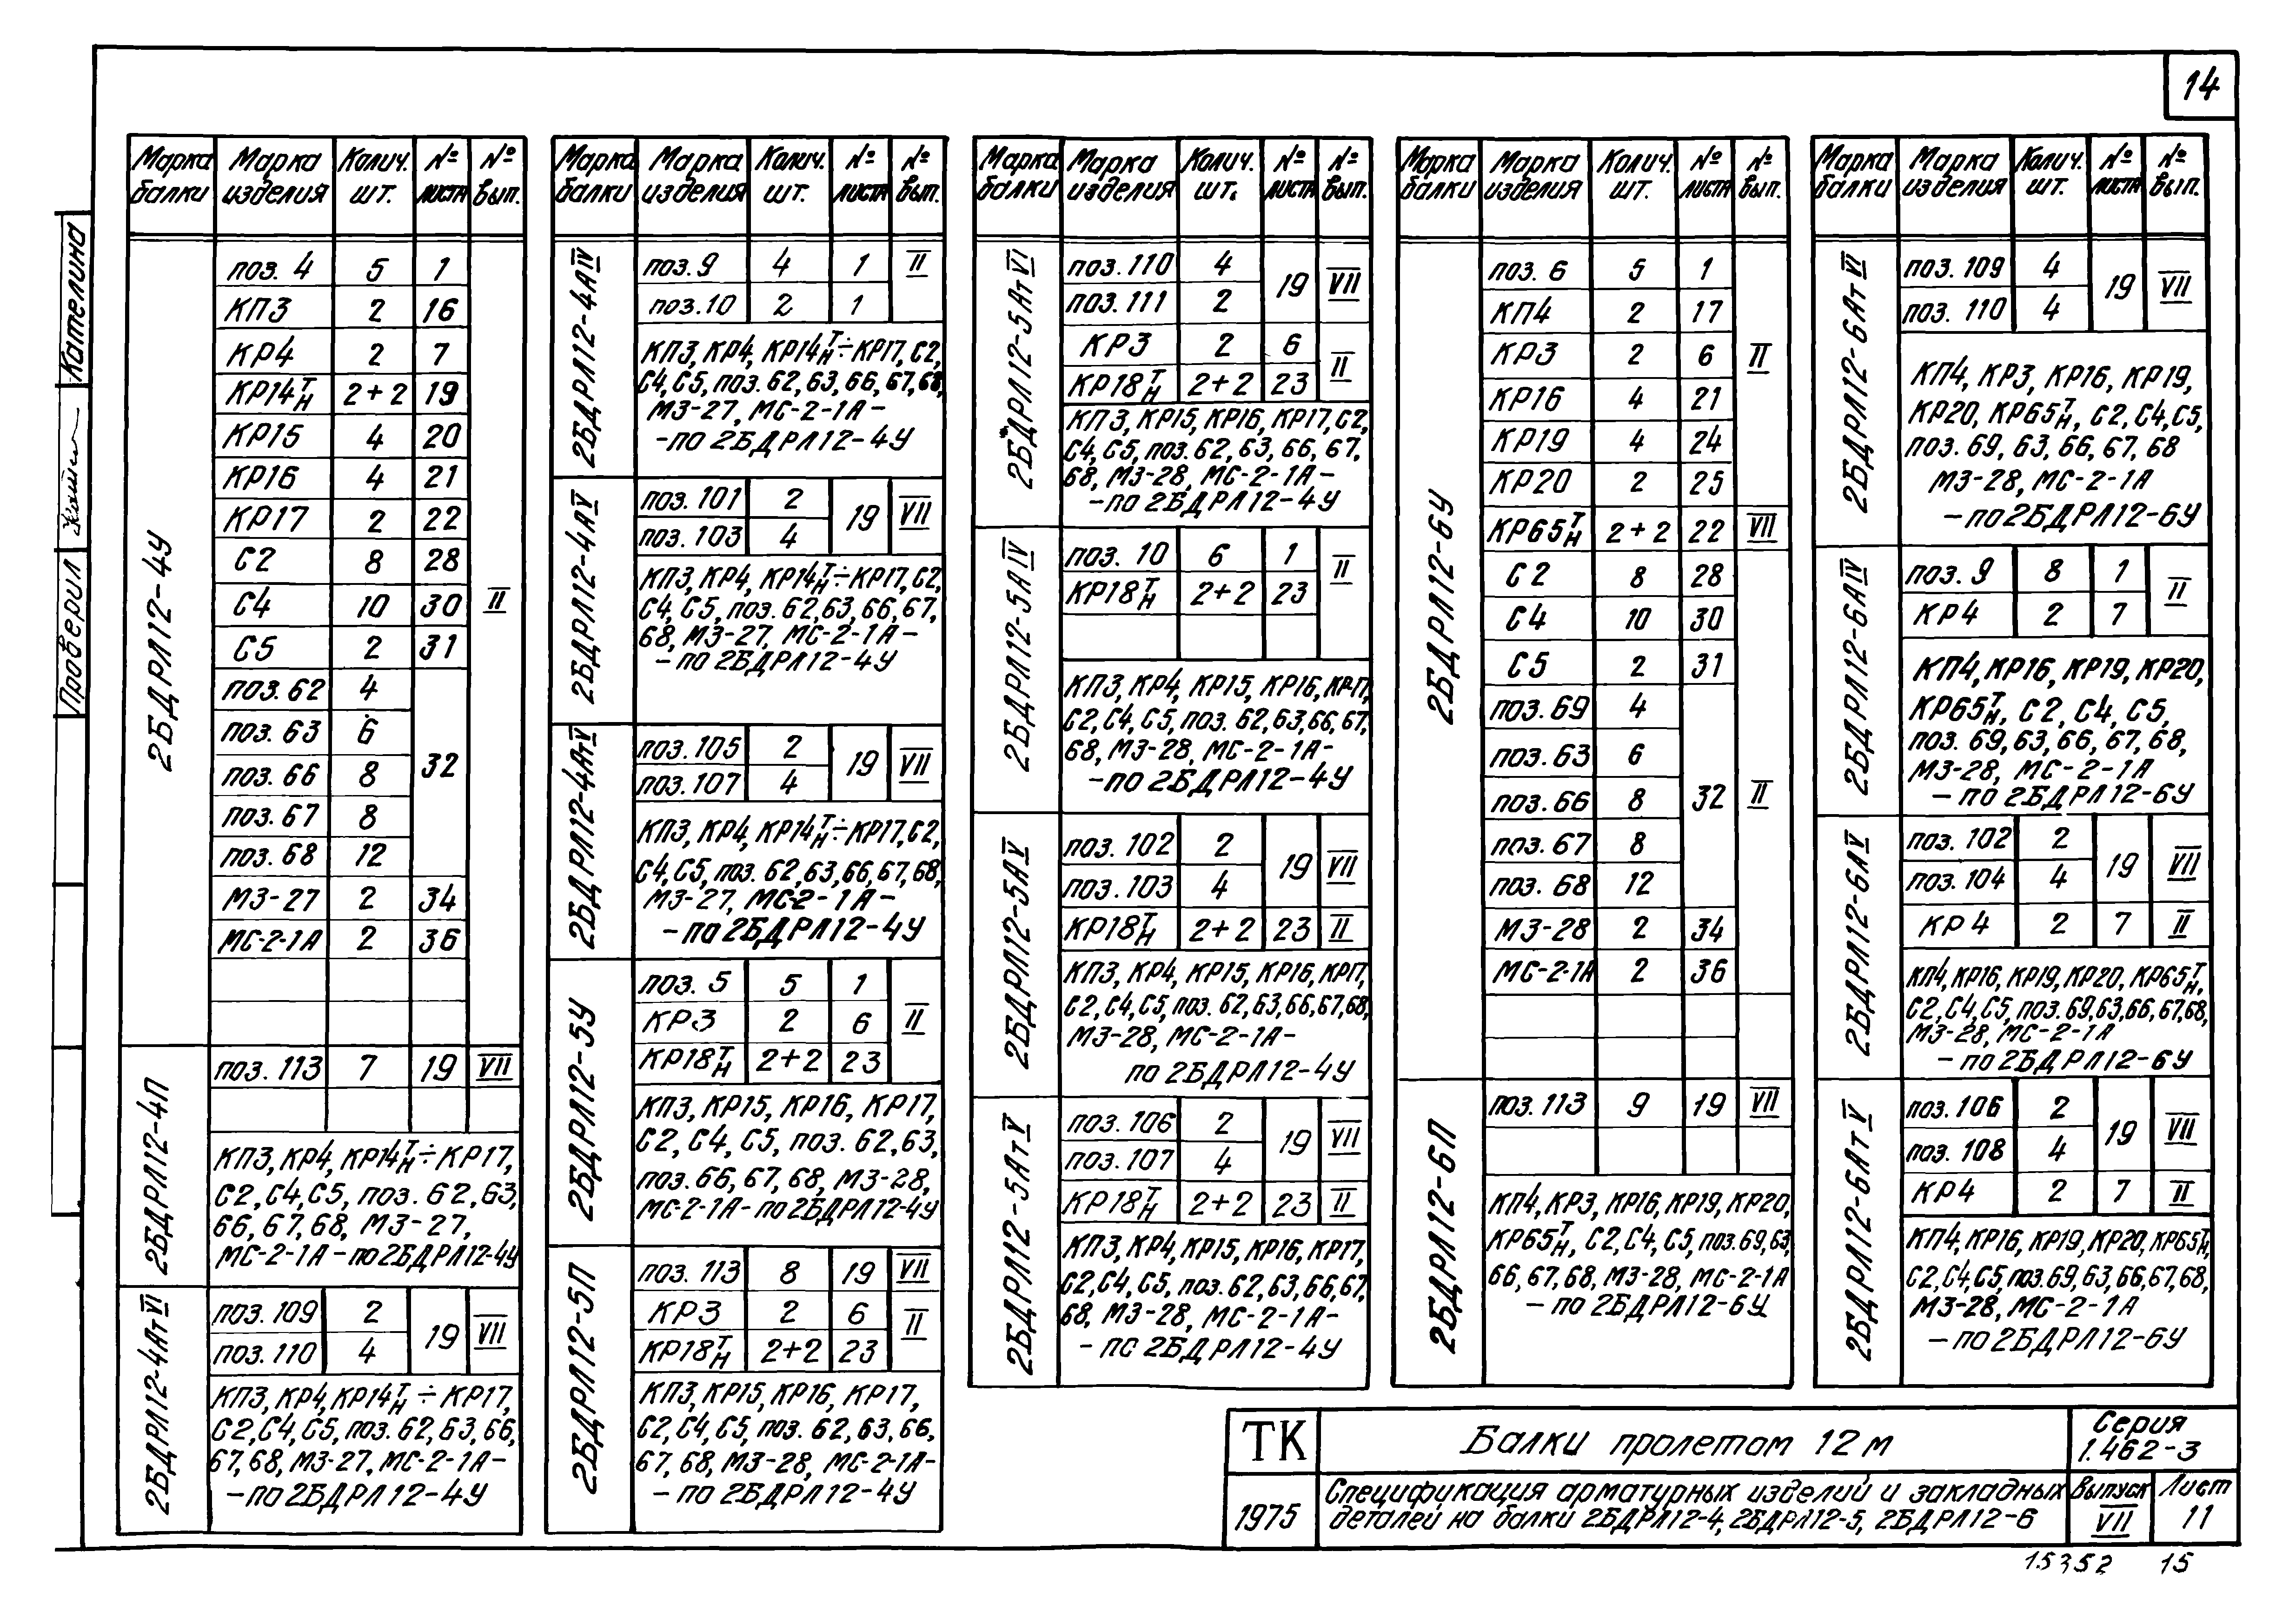 14
Марка балки Марка изделия Колич. шт. № листа № вып.
2БДРЛ12-4У
поз. 4 5 1
КП3 2 16
КР4 2 7
КР14 Т/Н 2+2 19
КР15 4 20
КР16 4 21
КР17 2 22
С2 8 28
С4 10 30 II
С5 2 31
поз. 62 4
поз. 63 6
поз. 66 8 32
поз. 67 8
поз. 68 12
М3-27 2 34
МС-2-1А 2 36
2БДРЛ12-4П
поз. 113 7 19 VII
КП3, КР4, КР14 Т/Н ÷ КР17,
С2, С4, С5, поз. 62, 63,
66, 67, 68, М3-27,
МС-2-1А - по 2БДРЛ12-4У
2БДРЛ12-4АтVI
поз. 109 2 19 VII
поз. 110 4
КП3, КР4, КР14 Т/Н ÷ КР17,
С2, С4, С5, поз. 62, 63, 66,
67, 68, М3-27, МС-2-1А -
- по 2БДРЛ12-4У
Марка балки Марка изделия Колич. шт. № листа № вып.
2БДРЛ12-4АIV
поз. 9 4 1 II
поз. 10 2 1
КП3, КР4, КР14 Т/Н ÷ КР17, С2,
С4, С5, поз. 62, 63, 66, 67, 68,
М3-27, МС-2-1А -
- по 2БДРЛ12-4У
2БДРЛ12-4АV
поз. 101 2 19 VII
поз. 103 4
КП3, КР4, КР14 Т/Н ÷ КР17, С2,
С4, С5, поз. 62, 63, 66, 67,
68, М3-27, МС-2-1А -
- по 2БДРЛ12-4У
2БДРЛ12-4АтV
поз. 105 2 19 VII
поз. 107 4
КП3, КР4, КР14 Т/Н ÷ КР17, С2,
С4, С5, поз. 62, 63, 66, 67, 68,
М3-27, МС-2-1А -
- по 2БДРЛ12-4У
2БДРЛ12-5У
поз. 5 5 1
КР3 2 6 II
КР18 Т/Н 2+2 23
КП3, КР15, КР16, КР17,
С2, С4, С5, поз. 62, 63,
поз. 66, 67, 68, М3-28,
МС-2-1А - по 2БДРЛ12-4У
2БДРЛ12-5П
поз. 113 8 19 VII
КР3 2 6 II
КР18 Т/Н 2+2 23
КП3, КР15, КР16, КР17,
С2, С4, С5, поз. 62, 63, 66,
67, 68, М3-28, МС-2-1А -
- по 2БДРЛ12-4У
Марка балки Марка изделия Колич. шт. № листа № вып.
2БДРЛ12-5АтVI
поз. 110 4 19 VII
поз. 111 2
КР3 2 6 II
КР18 Т/Н 2+2 23
КП3, КР15, КР16, КР17, С2,
С4, С5, поз. 62, 63, 66, 67,
68, М3-28, МС-2-1А -
- по 2БДРЛ12-4У
2БДРЛ12-5АIV
поз. 10 6 1 II
КР18 Т/Н 2+2 23
КП3, КР4, КР15, КР16, КР17,
С2, С4, С5, поз. 62, 63, 66, 67,
68, М3-28, МС-2-1А -
- по 2БДРЛ12-4У
2БДРЛ12-5АV
поз. 102 2 19 VII
поз. 103 4
КР18 Т/Н 2+2 23 II
КП3, КР4, КР15, КР16, КР17,
С2, С4, С5, поз. 62, 63, 66, 67, 68,
М3-28, МС-2-1А -
по 2БДРЛ12-4У
2БДРЛ12-5АтV
поз. 106 2 19 VII
поз. 107 4
КР18 Т/Н 2+2 23 II
КП3, КР4, КР15, КР16, КР17,
С2, С4, С5, поз. 62, 63, 66, 67,
68, М3-28, МС-2-1А -
- по 2БДРЛ12-4У
Марка балки Марка изделия Колич. шт. № листа № вып.
2БДРЛ12-6У
поз. 6 5 1
КП4 2 17
КР3 2 6 II
КР16 4 21
КР19 4 24
КР20 2 25
КР65 Т/Н 2+2 22 VII
С2 8 28
С4 10 30
С5 2 31
поз. 69 4
поз. 63 6
поз. 66 8 32 II
поз. 67 8
поз. 68 12
М3-28 2 34
МС-2-1А 2 36
2БДРЛ12-6П
поз. 113 9 19 VII
КП4, КР3, КР16, КР19, КР20,
КР65 Т/Н, С2, С4, С5, поз. 69, 63,
66, 67, 68, М3-28, МС-2-1А
- по 2БДРЛ12-6У
Марка балки Марка изделия Колич. шт. № листа № вып.
2БДРЛ12-6АтVI
поз. 109 4 19 VII
поз. 110 4
КП4, КР3, КР16, КР19,
КР20, КР65 Т/Н, С2, С4, С5,
поз. 69, 63, 66, 67, 68
М3-28, МС-2-1А
- по 2БДРЛ12-6У
2БДРЛ12-6АIV
поз. 9 8 1 II
КР4 2 7
КП4, КР16, КР19, КР20,
КР65 Т/Н, С2, С4, С5,
поз. 69, 63, 66, 67, 68,
М3-28, МС-2-1А
- по 2БДРЛ12-6У
2БДРЛ12-6АV
поз. 102 2 19 VII
поз. 104 4
КР4 2 7 II
КП4, КР16, КР19, КР20, КР65 Т/Н,
С2, С4, С5, поз. 69, 63, 66, 67, 68,
М3-28, МС-2-1А
- по 2БДРЛ12-6У
2БДРЛ12-6АтV
поз. 106 2 19 VII
поз. 108 4
КР4 2 7 II
КП4, КР16, КР19, КР20, КР65 Т/Н,
С2, С4, С5, поз. 69, 63, 66, 67, 68,
М3-28, МС-2-1А
- по 2БДРЛ12-6У
Проверил Кателина
ТК Балки пролетом 12 м Серия 1.462-3
1975 Спецификация арматурных изделий и закладных
деталей на балки 2БДРЛ12-4, 2БДРЛ12-5, 2БДРЛ12-6
Выпуск VII Лист 11
15352 15